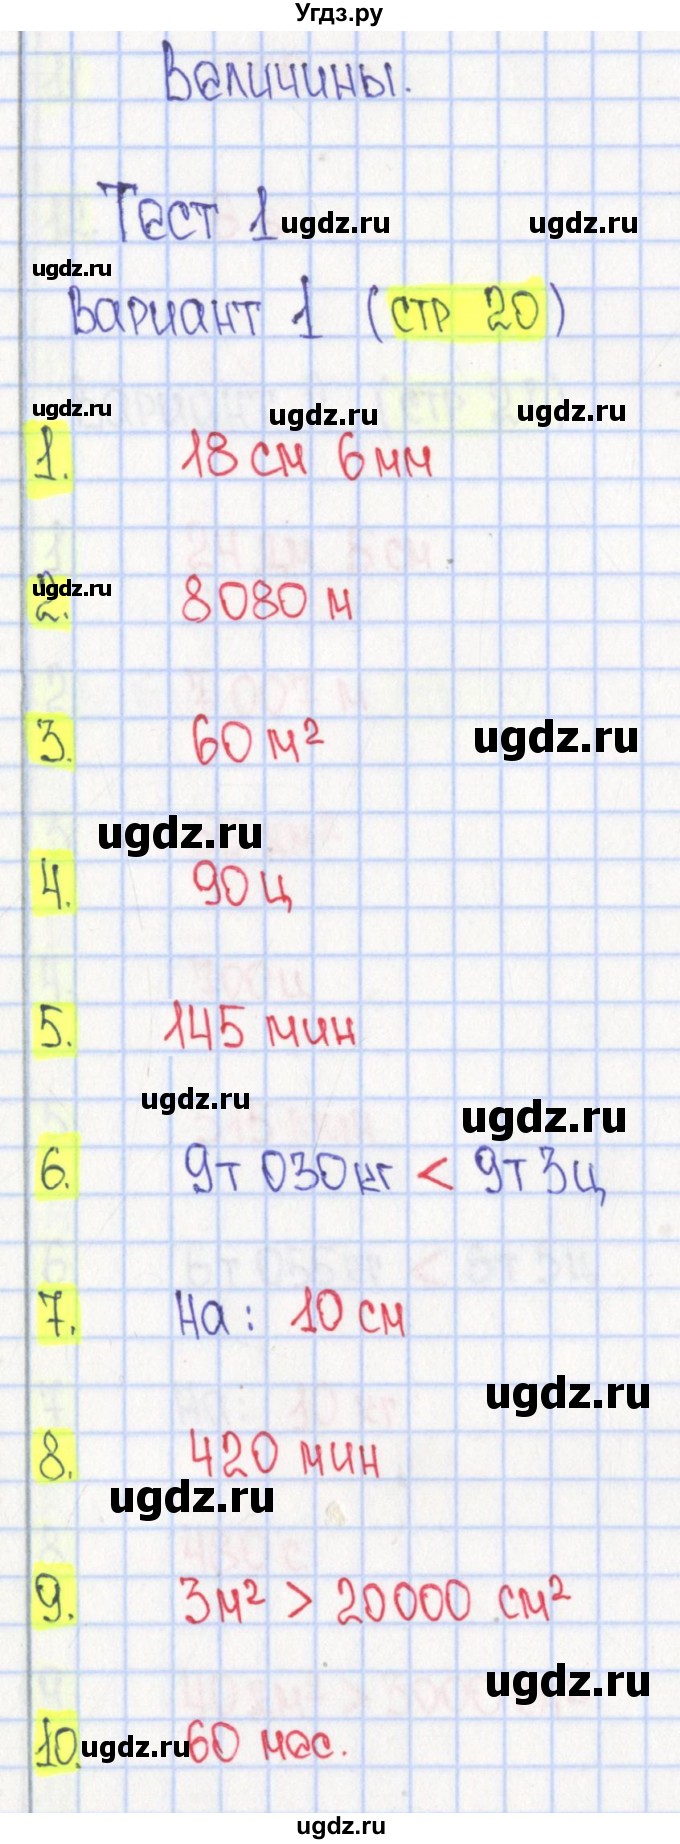 Угдз.ру
Величины.
Тест 1
ugdz.ru ugdz.ru
ugdz.ru
Вариант 1 (стр 20)
ugdz.ru ugdz.ru ugdz.ru
1. 18 см 6 мм
2. 8080 м
ugdz.ru
3. 60 м²
ugdz.ru
ugdz.ru
4. 90 ц
5. 145 мин
ugdz.ru ugdz.ru
6. 9т 030кг < 9т 3ц
7. На: 10 см
ugdz.ru
8. 420 мин
ugdz.ru
9. 3м² > 20000 см²
ugdz.ru
10. 60 мес.
ugdz.ru
ugdz.ru